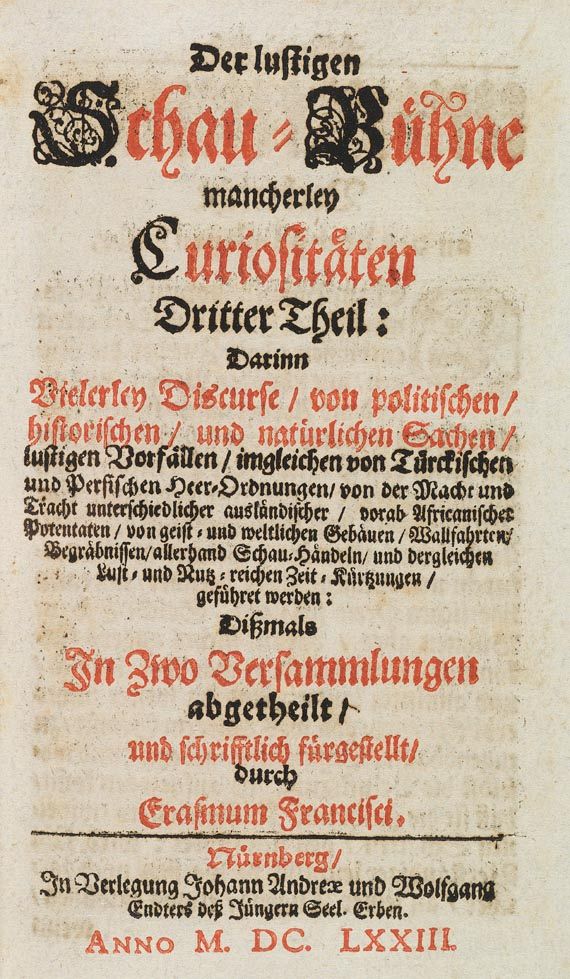 Der lustigen
Schau-Bühne
mancherley
Curiositäten
Dritter Theil:
Darinn
Vielerley Discurse / von politischen /
historischen / und natürlichen Sachen /
lustigen Vorfällen / imgleichen von Türckischen
und Persischen Heer-Ordnungen / von der Macht und
Tracht unterschiedlicher ausländischer / vorab Africanischer
Potentaten / von geist- und weltlichen Gebäuen / Wallfahrten /
Begräbnissen / allerhand Schau-Händeln / und dergleichen
Lust- und Nutz-reichen Zeit-Kürtzungen /
geführet werden:
Dißmals
In Zwo Versammlungen
abgetheilt /
und schrifftlich fürgestellt /
durch
Erasmum Francisci.
Nürnberg /
In Verlegung Johann Andreæ und Wolfgang
Endters deß Jüngern Seel. Erben.
ANNO M. DC. LXXIII.